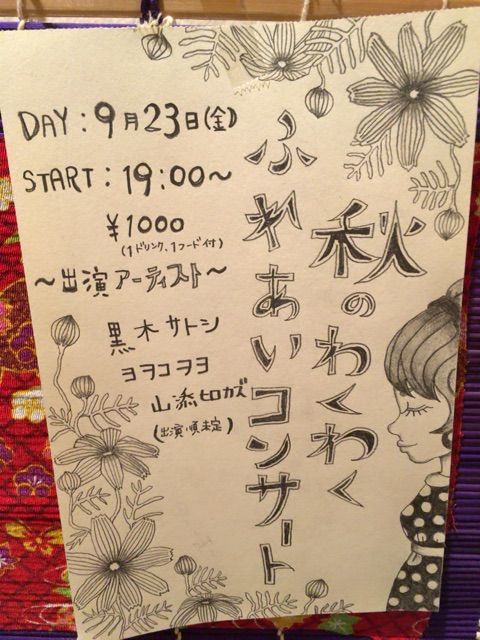 秋のわくわく
ふれあいコンサート
DAY：9月23日（金）
START：19:00〜
¥1000
（1ドリンク、1フード付）
〜出演アーティスト〜
黒木サトシ
ヨヲコヲヨ
山添ヒロカズ
（出演順未定）